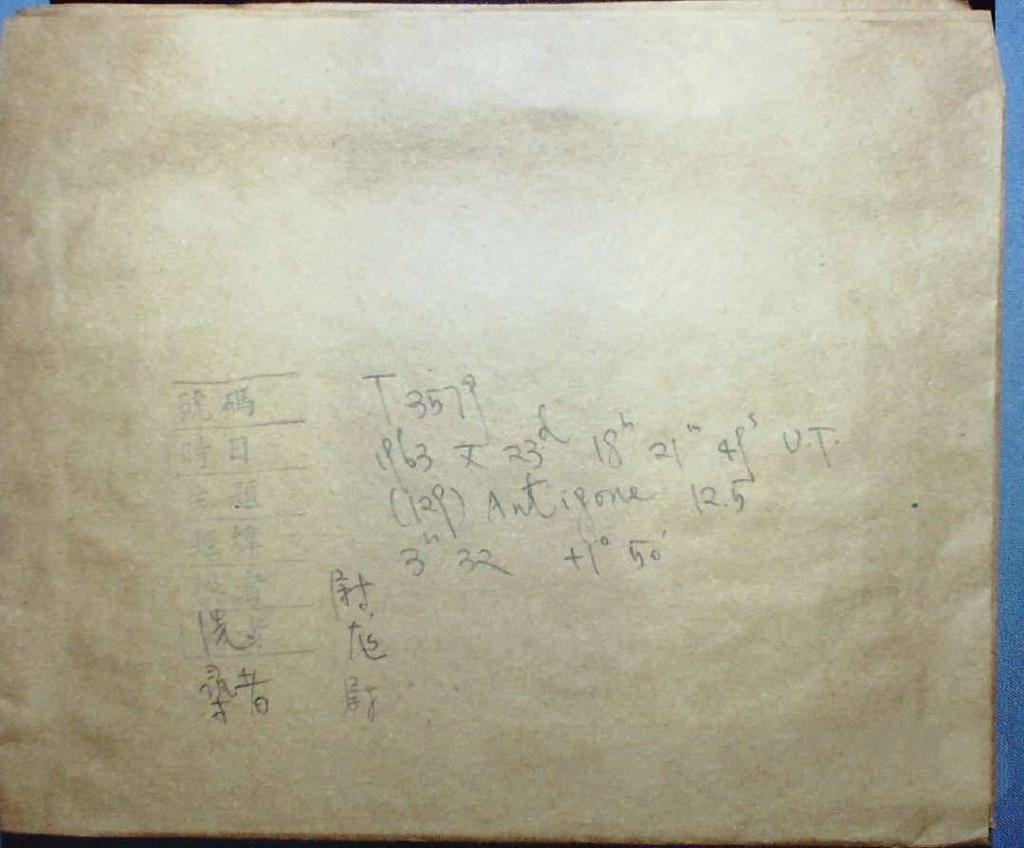 號碼 T 3579
時日 1963 X 23ᵈ 18ʰ 21ᵐ 49ˢ U.T.
主題 (129) Antigone 12.5
經緯 3ʰ 32 +1° 50′
者 尉
洗
尉